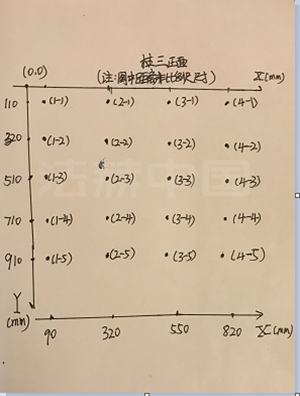 柱三正面
(0.0) (注:图中距离非比例尺尺寸) X(mm)
110 (1-1) (2-1) (3-1) (4-1)
320 (1-2) (2-2) (3-2) (4-2)
510 (1-3) (2-3) (3-3) (4-3)
710 (1-4) (2-4) (3-4) (4-4)
910 (1-5) (2-5) (3-5) (4-5)
Y
(mm) 90 320 550 820 X(mm)